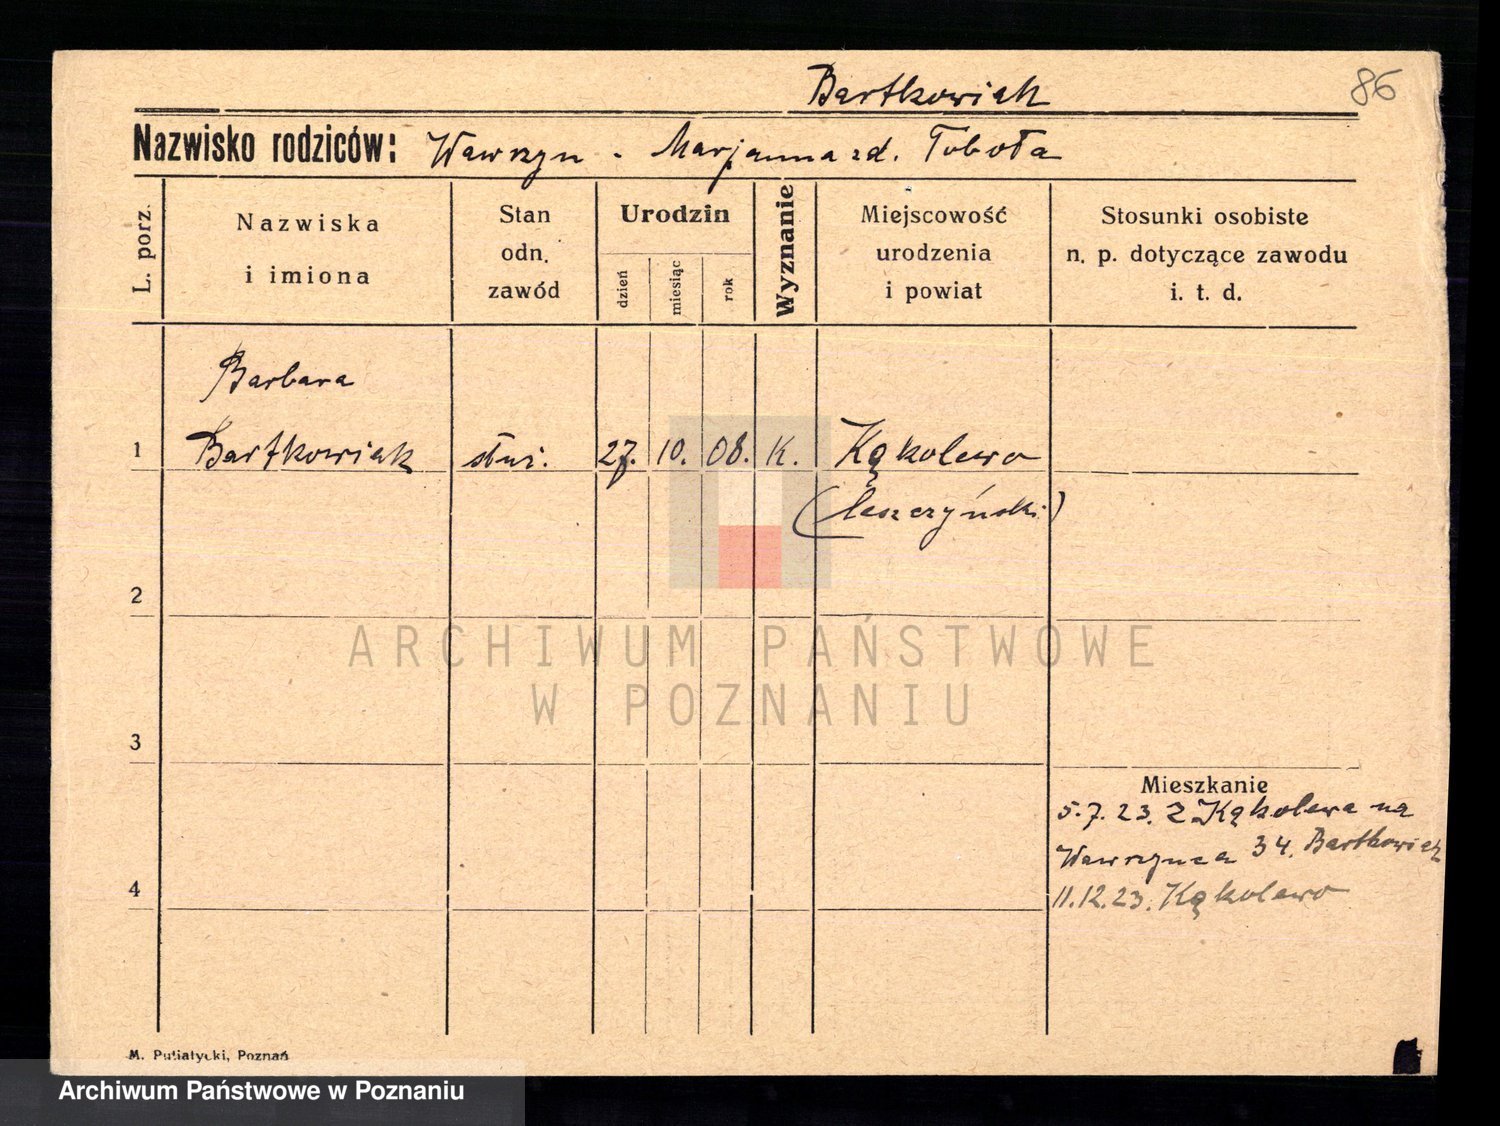 Bartkowiak
86
Nazwisko rodziców: Wawrzyn - Marjanna zd. Toboła
L. porz.
Nazwiska
i imiona
Stan
odn.
zawód
Urodzin
dzień
miesiąc
rok
Wyznanie
Miejscowość
urodzenia
i powiat
Stosunki osobiste
n. p. dotyczące zawodu
i. t. d.
Barbara
1 Bartkowiak służ. 27. 10. 08. K. Kąkolewo
(leszczyński)
2
ARCHIWUM PAŃSTWOWE
W POZNANIU
3
Mieszkanie
5.7.23. Z Kąkolewa na
Wawrzyńca 34. Bartkowiak
4
11.12.23. Kąkolewo
M. Putiatycki, Poznań
Archiwum Państwowe w Poznaniu